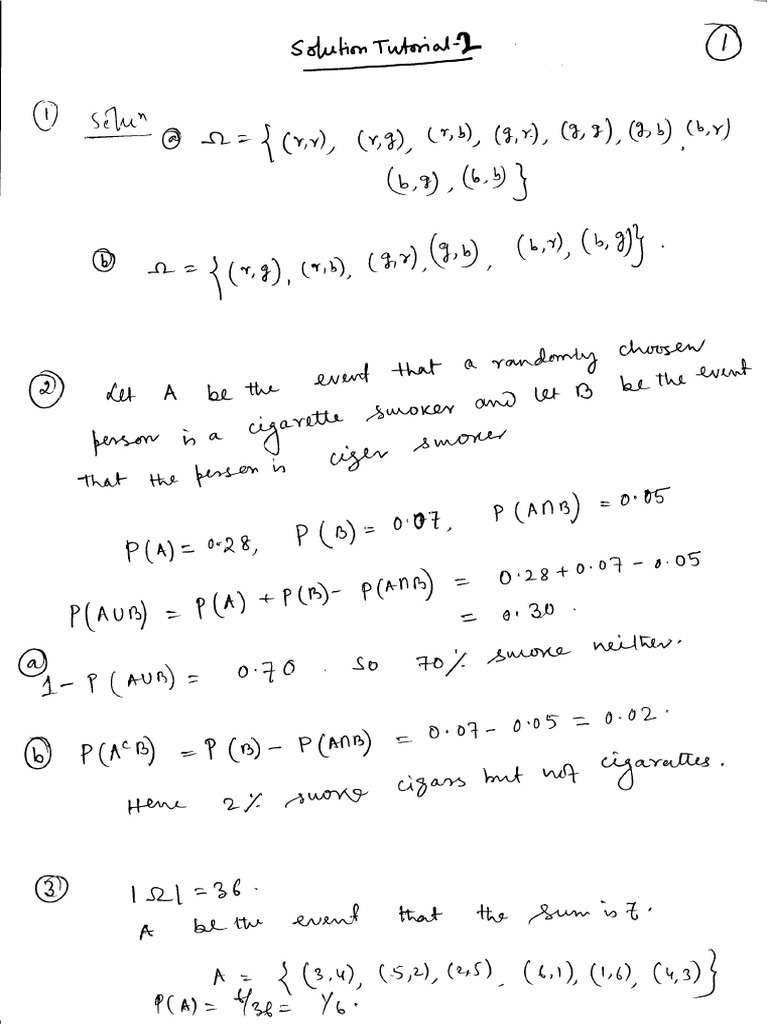 Solution Tutorial-2
①
① Solun ⓐ Ω = { (r,r), (r,g), (r,b), (g,r), (g,g), (g,b), (b,r)
(b,g), (b,b) }
ⓑ Ω = { (r,g), (r,b), (g,r), (g,b), (b,r), (b,g) } .
② Let A be the event that a randomly choosen
person is a cigarette smoker and let B be the event
that the person is ciger smoker
P(A) = 0.28, P(B) = 0.07, P(A∩B) = 0.05
P(A∪B) = P(A) + P(B) - P(A∩B) = 0.28 + 0.07 - 0.05
= 0.30 .
ⓐ
1 - P(A∪B) = 0.70 . So 70% smoke neither.
ⓑ P(AᶜB) = P(B) - P(A∩B) = 0.07 - 0.05 = 0.02 .
Hene 2% smoke cigars but not cigarattes.
③ |Ω| = 36 .
A be the event that the sum is 7.
A = { (3,4), (5,2), (2,5), (6,1), (1,6), (4,3) }
P(A) = 6/36 = 1/6 .